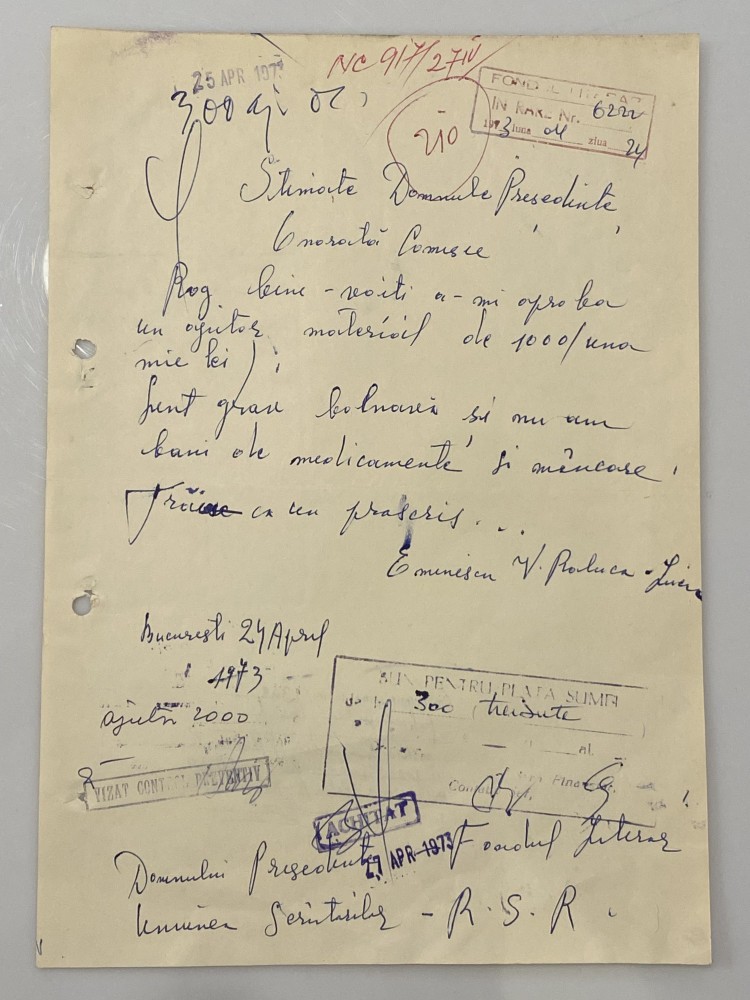 25 APR 1973
NC 917/27 IV
300 aj
210
FONDUL LITERAR
INTRARE Nr. 6222
1973 luna 04 ziua 24
Stimate Domnule Președinte,
Onorată Comisie,
Rog bine-voiti a-mi aproba
un ajutor material de 1000/una
mie lei);
Sunt grav bolnavă și nu am
bani de medicamente și mâncare.
Trăiesc ca un proscris...
Eminescu V. Raluca-Lucia
București 24 April
1973
ajutor 2000
VIZAT CONTROL PREVENTIV
BUN PENTRU PLATA SUMEI
de lei 300 treisute
al.
ACHITAT
27 APR 1973
Domnului Președinte Fondul Literar
Uniunea Scriitorilor - R.S.R.